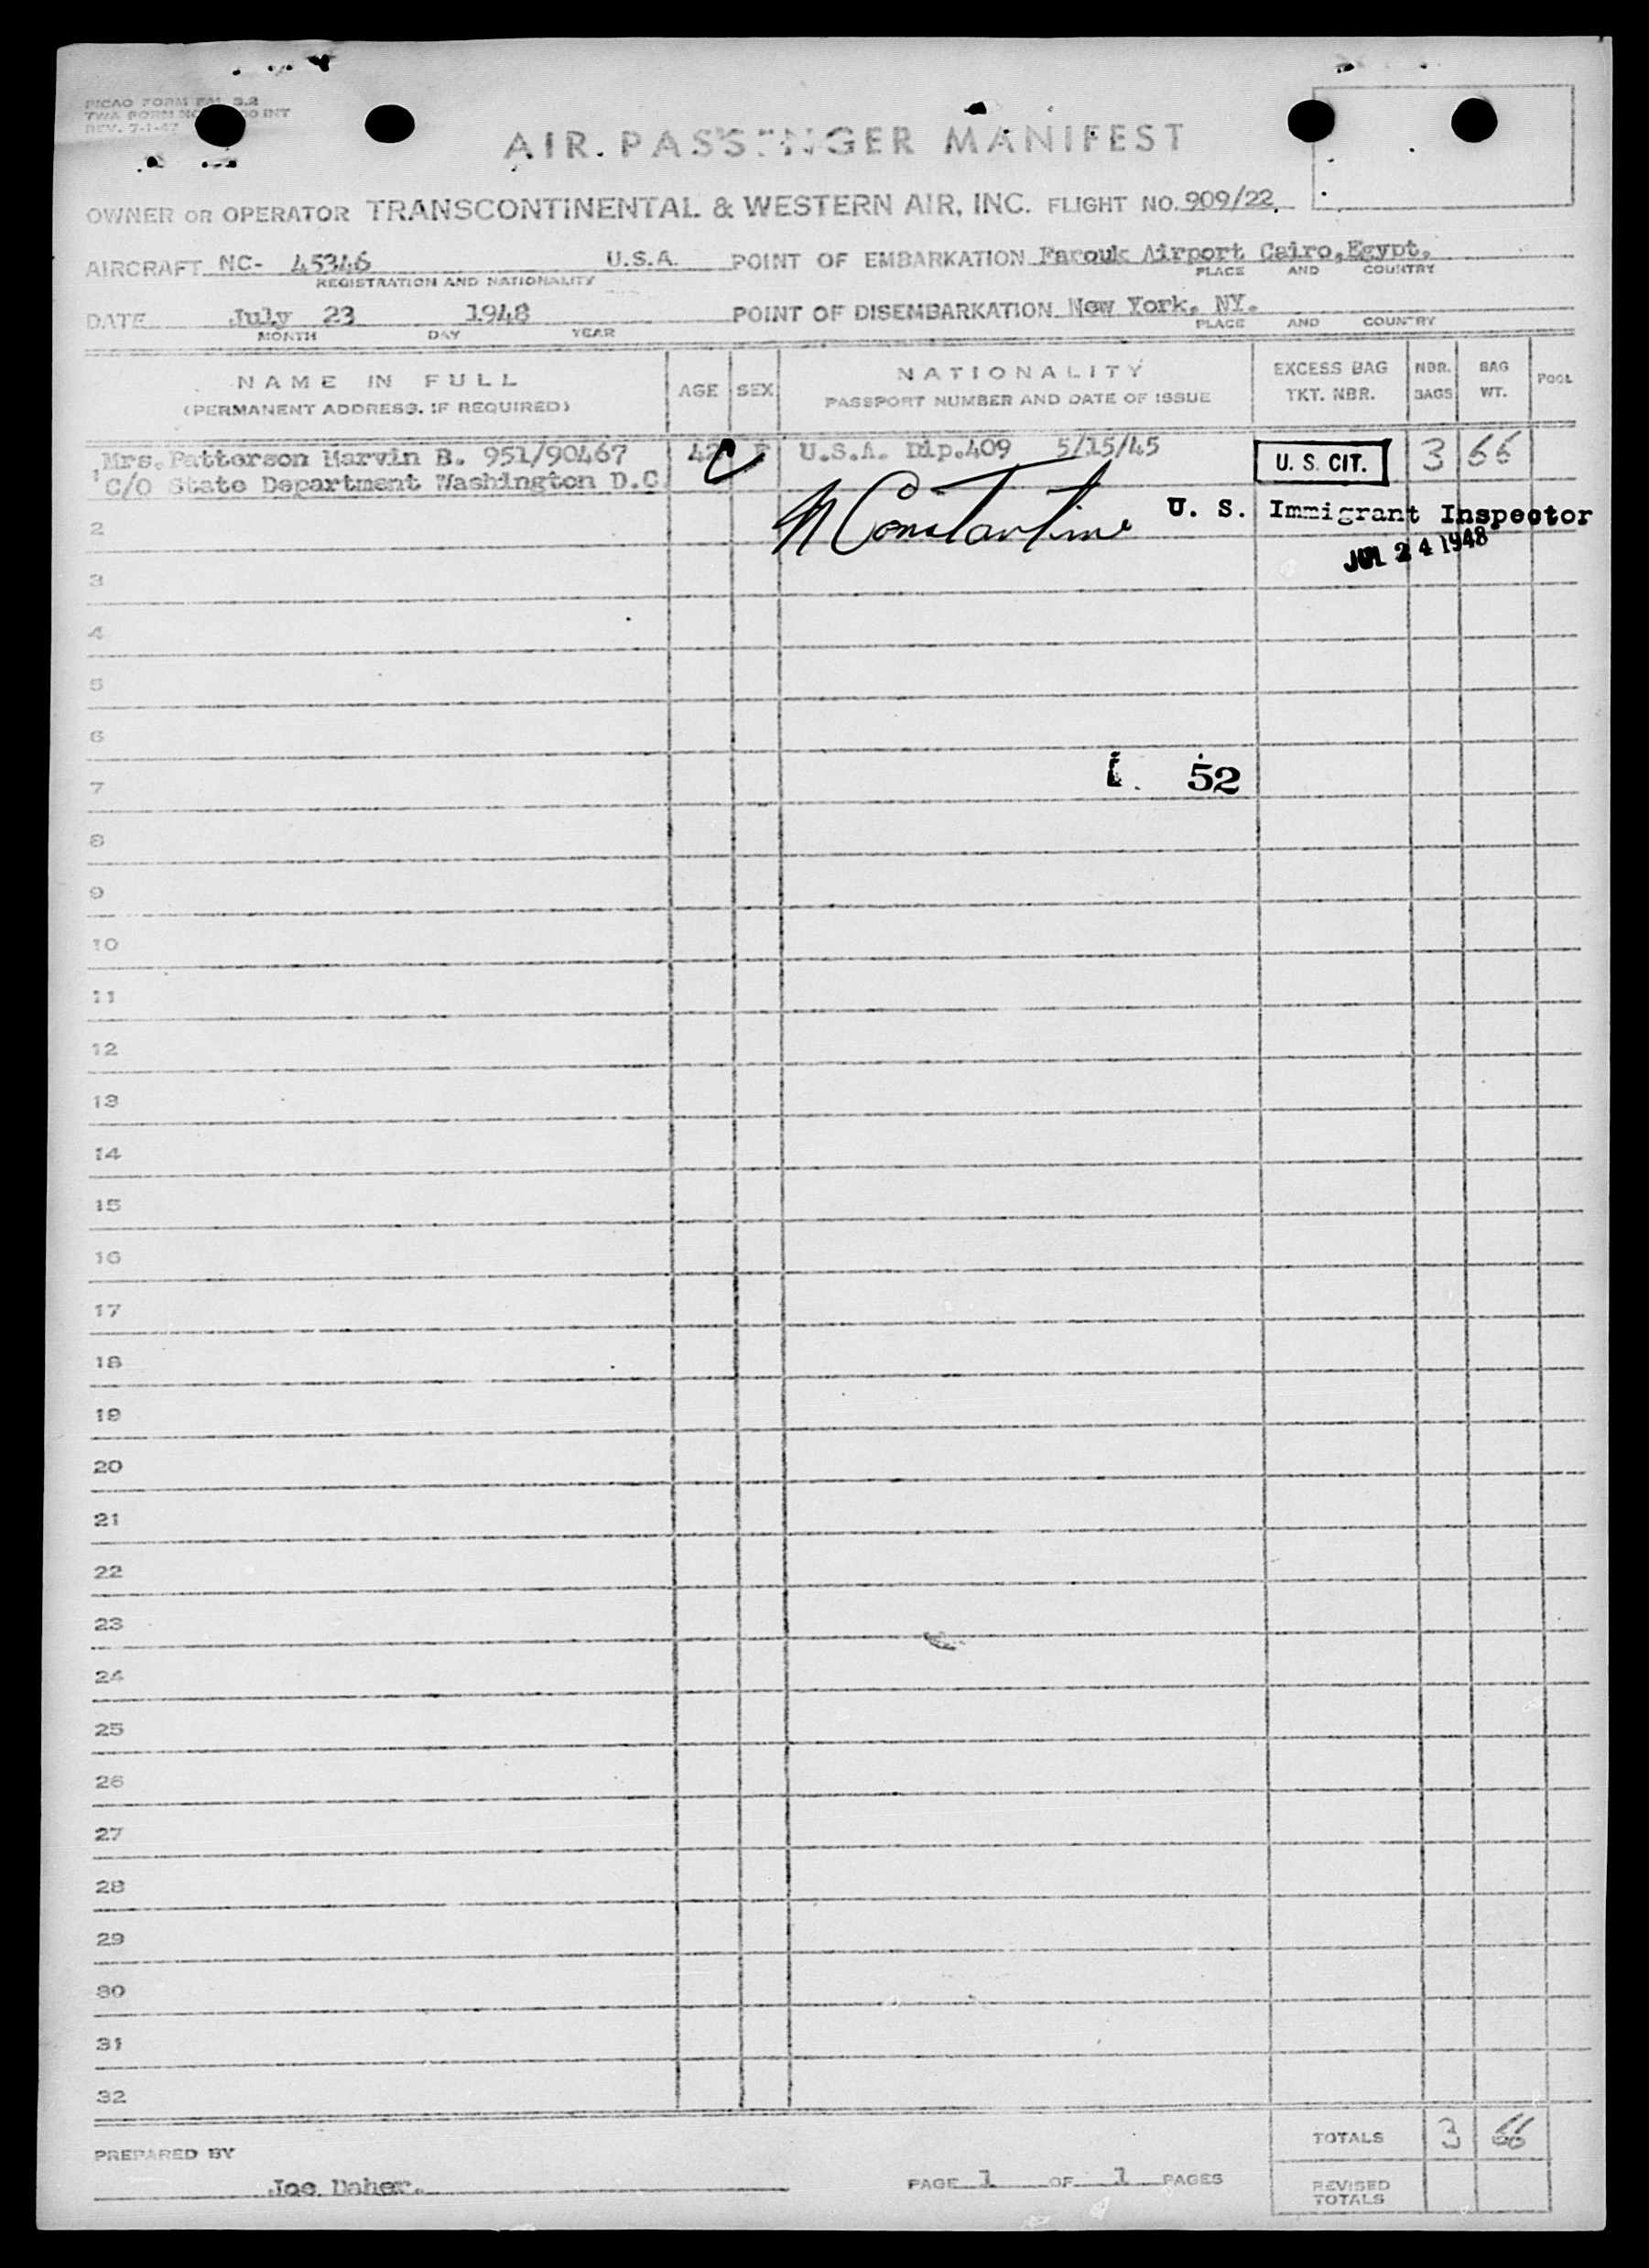 PICAO FORM FAL 3.2
TWA FORM NO INT
REV. 7-1-47
AIR PASSENGER MANIFEST
OWNER OR OPERATOR TRANSCONTINENTAL & WESTERN AIR, INC. FLIGHT NO. 909/22.
AIRCRAFT NC- 45346 U.S.A. POINT OF EMBARKATION Farouk Airport Cairo,Egypt.
REGISTRATION AND NATIONALITY PLACE AND COUNTRY
DATE July 23 1948 POINT OF DISEMBARKATION New York, NY.
MONTH DAY YEAR PLACE AND COUNTRY
NAME IN FULL AGE SEX NATIONALITY EXCESS BAG NBR. BAG POOL
(PERMANENT ADDRESS, IF REQUIRED) PASSPORT NUMBER AND DATE OF ISSUE TKT. NBR. BAGS WT.
1 Mrs. Patterson Marvin B. 951/90467 42 F U.S.A. Dip.409 5/15/45 U. S. CIT. 3 66
C/O State Department Washington D.C
N Constantine U. S. Immigrant Inspector
2
JUL 24 1948
3
4
5
6
7 52
8
9
10
11
12
13
14
15
16
17
18
19
20
21
22
23
24
25
26
27
28
29
30
31
32
TOTALS 3 66
PREPARED BY
Joe Daher. PAGE 1 OF 1 PAGES
REVISED
TOTALS